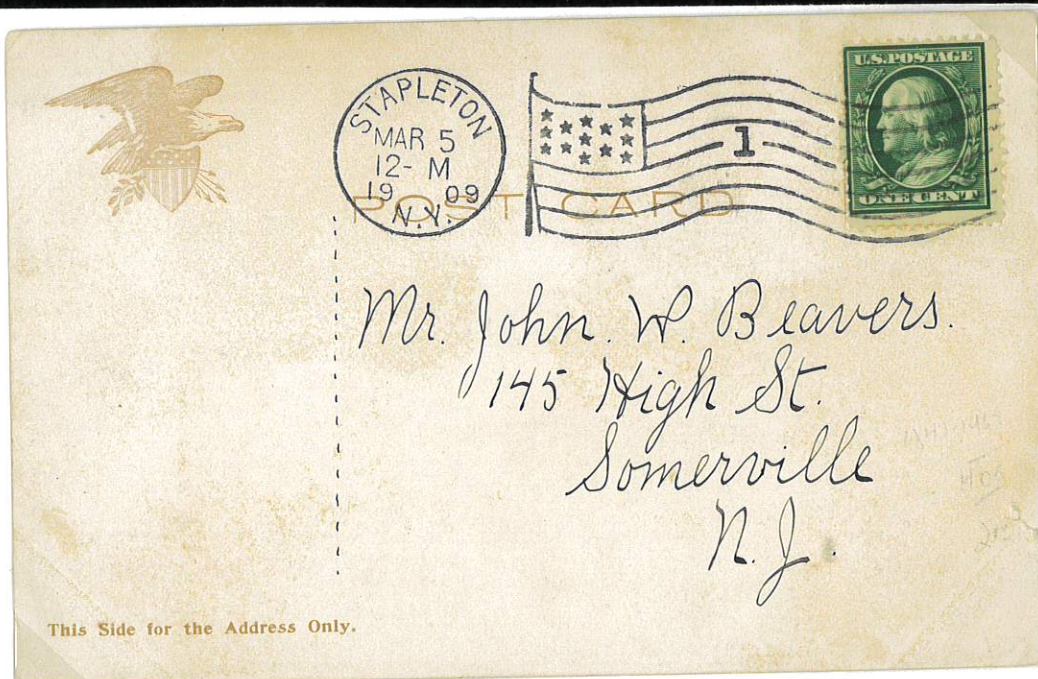 STAPLETON
MAR 5
12- M
19 09
N.Y.
1
U.S. POSTAGE
ONE CENT
POST CARD
Mr. John. W. Beavers.
145 High St.
Somerville
N.J.
This Side for the Address Only.